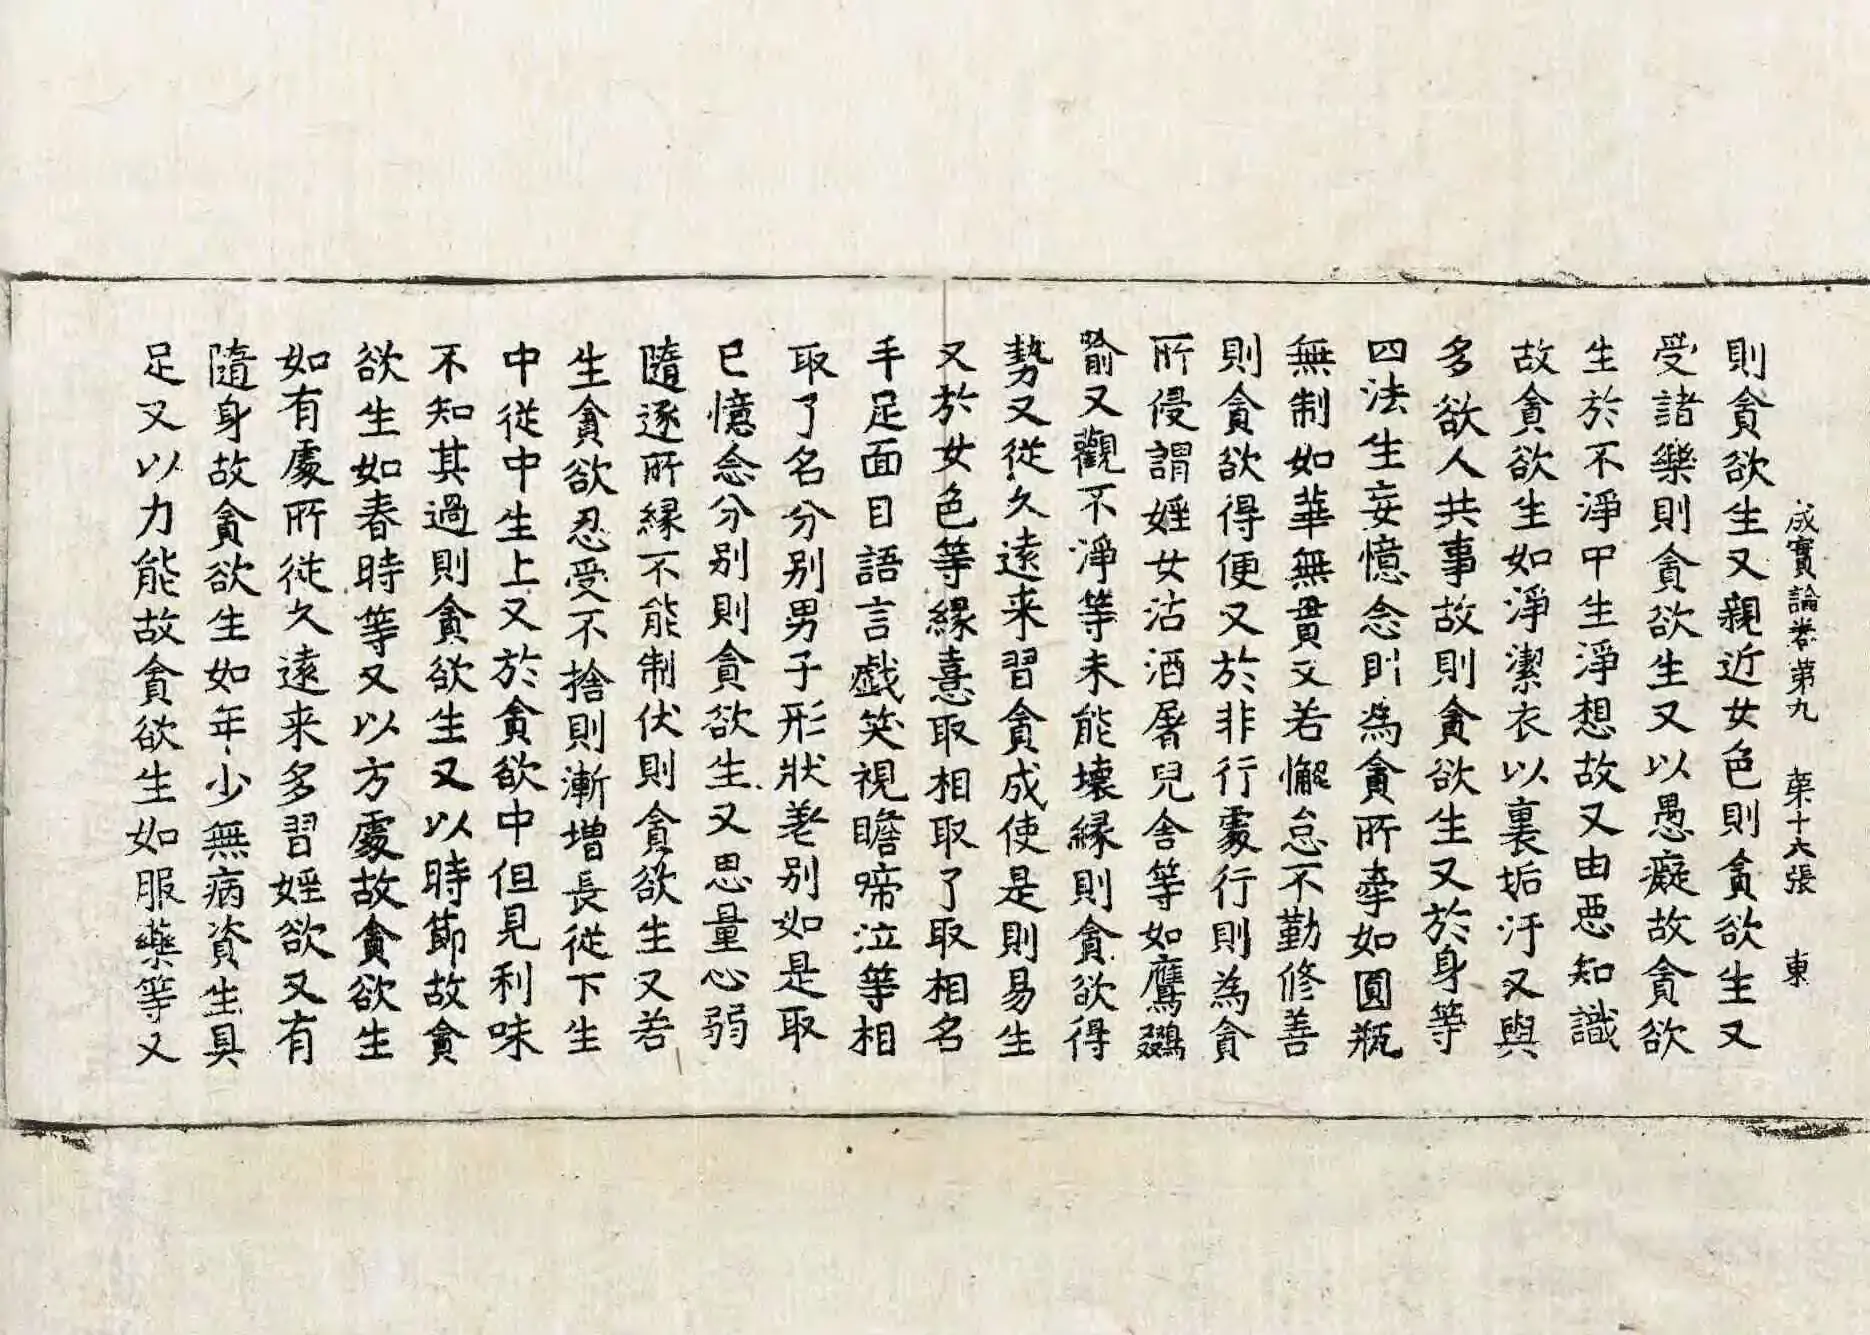 成實論卷第九 苐十六張 東
則貪欲生又親近女色則貪欲生又
受諸樂則貪欲生又以愚癡故貪欲
生於不淨中生淨想故又由惡知識
故貪欲生如淨潔衣以裏垢汙又與
多欲人共事故則貪欲生又於身等
四法生妄憶念則為貪所牽如圓瓶
無制如華無貫又若懈怠不勤修善
則貪欲得便又於非行處行則為貪
所侵謂婬女沽酒屠兒舍等如鷹鷂
喻又觀不淨等未能壞緣則貪欲得
勢又從久遠来習貪成使是則易生
又於女色等緣憙取相取了取相名
手足面目語言戲笑視瞻啼泣等相
取了名分別男子形狀差別如是取
已憶念分別則貪欲生又思量心弱
隨逐所緣不能制伏則貪欲生又若
生貪欲忍受不捨則漸增長從下生
中從中生上又於貪欲中但見利味
不知其過則貪欲生又以時節故貪
欲生如春時等又以方處故貪欲生
如有處所從久遠来多習婬欲又有
隨身故貪欲生如年少無病資生具
足又以力能故貪欲生如服藥等又